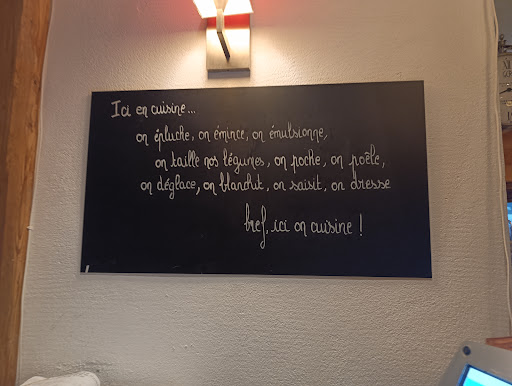 Ici en cuisine...
on épluche, on émince, on émulsionne,
on taille nos légumes, on poche, on poêle,
on déglace, on blanchit, on saisit, on dresse
bref, ici on cuisine !